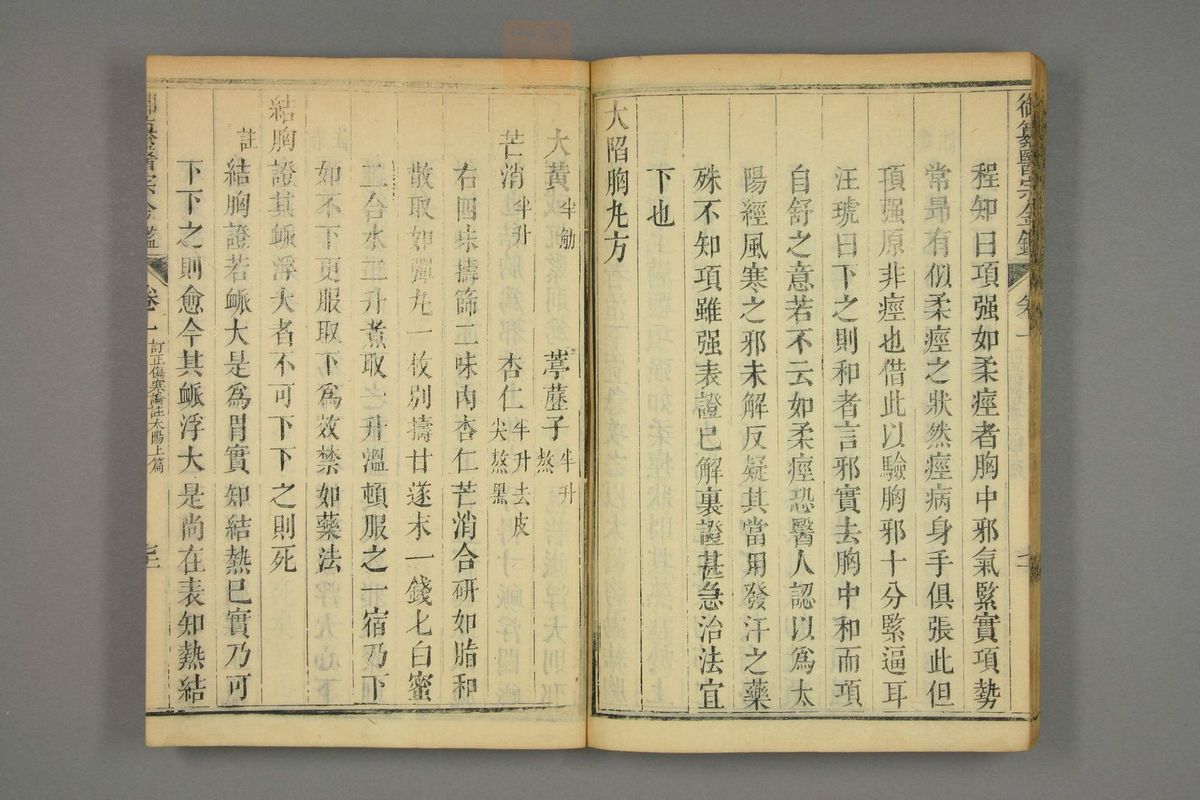 御纂醫宗金鑑
卷一
程知曰項强如柔痙者胸中邪氣緊實項勢
常昻有似柔痙之狀然痙病身手俱張此但
項强原非痙也借此以驗胸邪十分緊逼耳
汪琥曰下之則和者言邪實去胸中和而項
自舒之意若不云如柔痙恐醫人認以爲太
陽經風寒之邪未解反疑其當用發汗之藥
殊不知項雖强表證已解裏證甚急治法宜
下也
大陷胸丸方
大黃半觔 葶藶子半升熬
芒消半升 杏仁半升去皮尖熬黑
右四味擣篩二味內杏仁芒消合研如脂和
散取如彈丸一枚別擣甘遂末一錢匕白蜜
二合水二升煮取一升溫頓服之一宿乃下
如不下更服取下爲效禁如藥法
結胸證其脈浮大者不可下下之則死
註
結胸證若脈大是爲胃實知結熱已實乃可
下下之則愈今其脈浮大是尚在表知熱結
御纂醫宗金鑑
卷一
訂正傷寒論註太陽上篇